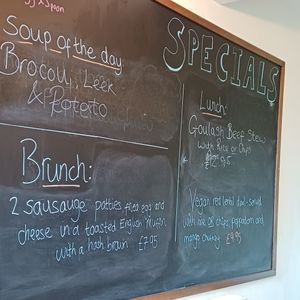 Spoon
Soup of the day
Brocoli, Leek
& Potato
SPECIALS
Lunch:
Goulash Beef Stew
with Rice or Chips
£12.95
Brunch:
2 sausauge patties fried egg and
cheese in a toasted English Muffin
with a hash brown £7.95
Vegan red lentil dal - served
with rice OR chips, poppadom and
mango chutney £9.95